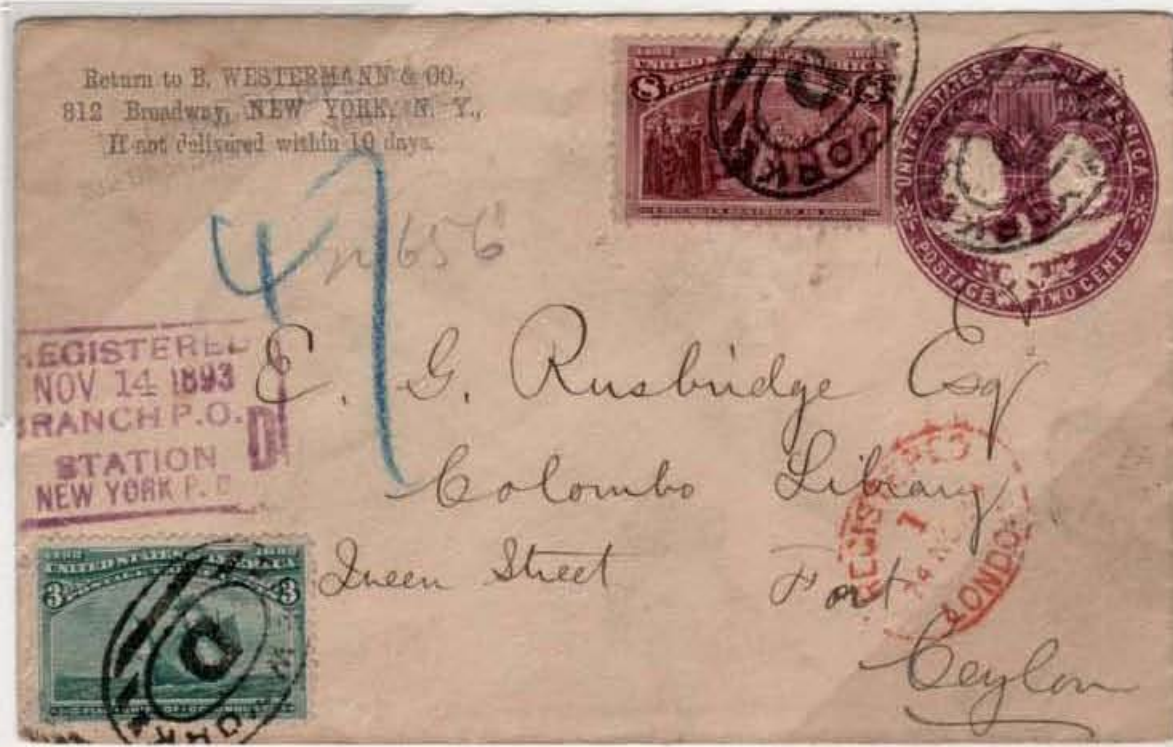 Return to B. WESTERMANN & CO.,
812 Broadway, NEW YORK, N. Y.,
If not delivered within 10 days.
8 8
UNITED STATES OF AMERICA
POSTAGE TWO CENTS
YORK
47
656
REGISTERED
NOV 14 1893
BRANCH P.O.
STATION D
NEW YORK P.O
E. G. Rusbridge Esq
Colombo Library
Queen Street Fort
Ceylon
REGISTERED
LONDON
UNITED STATES OF AMERICA
3 3
D